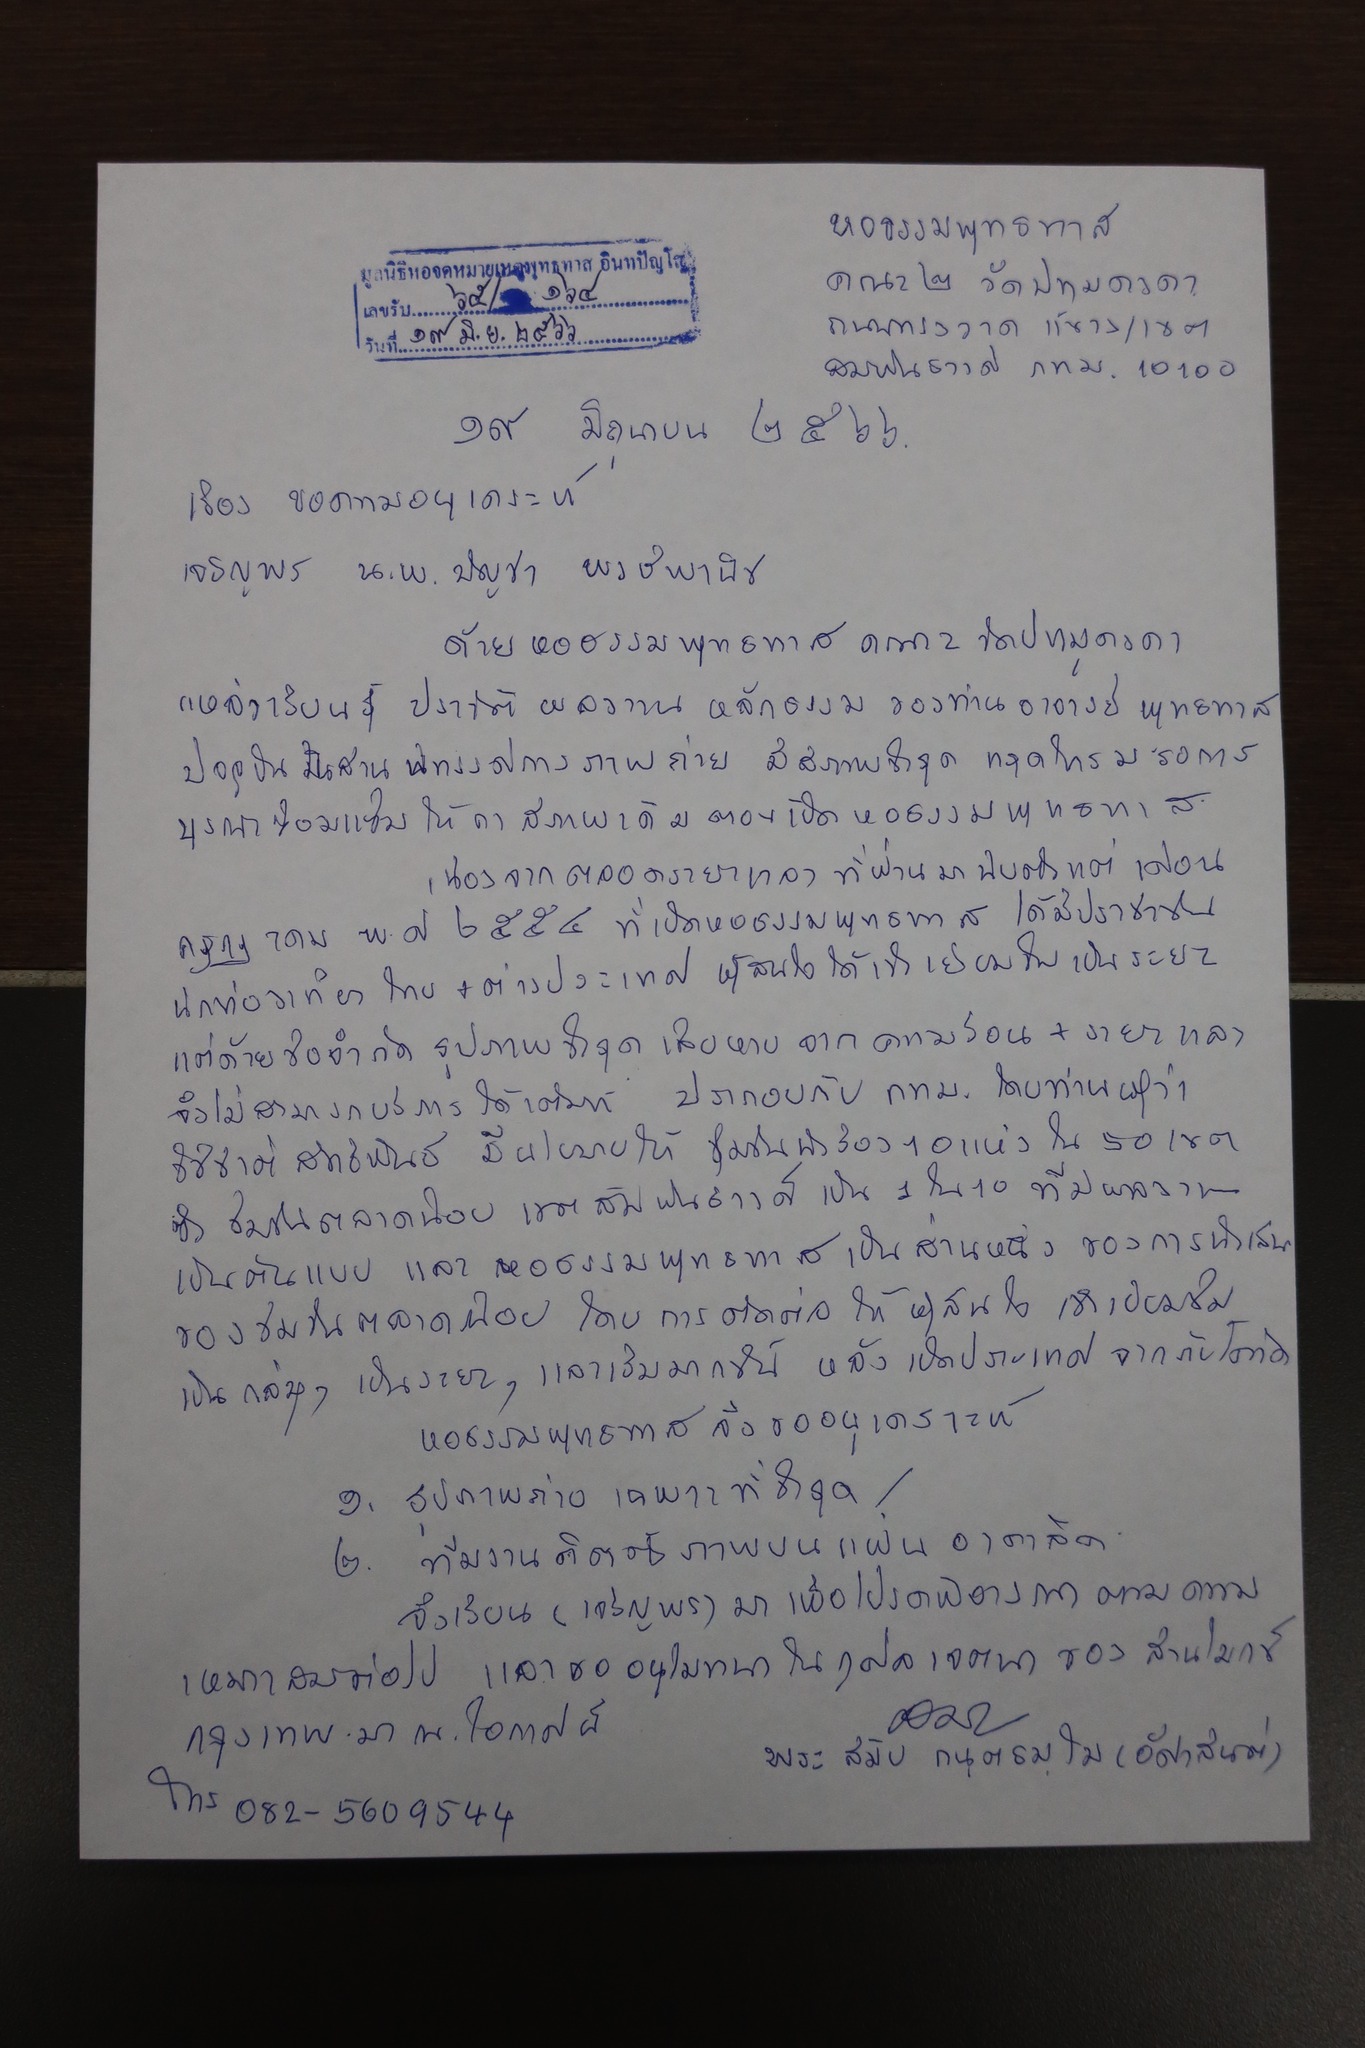 หอธรรมพุทธทาส
มูลนิธิหอจดหมายเหตุพุทธทาส อินทปัญโญ
คณะ ๒ วัดปทุมคงคา
เลขรับ ๖๕/ ๑๖๔
ถนนทรงวาด แขวง/เขต
วันที่ ๑๙ มิ.ย. ๒๕๖๖
สัมพันธวงศ์ กทม. 10100
๑๙ มิถุนายน ๒๕๖๖.
เรื่อง ขอความอนุเคราะห์
เจริญพร น.พ. บัญชา พงษ์พานิช
ด้วย หอธรรมพุทธทาส คณะ ๒ วัดปทุมคงคา
แหล่งเรียนรู้ ประวัติ ผลงาน หลักธรรม ของท่านอาจารย์ พุทธทาส
ปัจจุบัน นิทรรศการภาพถ่าย มีสภาพชำรุด ทรุดโทรม รอการ
บูรณะซ่อมแซม ให้ สภาพเดิม ตอนเปิด หอธรรมพุทธทาส
เนื่องจาก ตลอดระยะเวลา ที่ผ่านมา นับตั้งแต่ เดือน
กรกฎาคม พ.ศ ๒๕๕๔ ที่เปิดหอธรรมพุทธทาส ได้มีประชาชน
นักท่องเที่ยว ไทย + ต่างประเทศ ผู้สนใจ ได้เข้าเยี่ยมชม เป็นระยะ
แต่ด้วยข้อจำกัด รูปภาพชำรุด เสียหาย จาก ความร้อน + ระยะเวลา
จึงไม่สามารถบริการ ได้เต็มที่ ประกอบกับ กทม. โดยท่านผู้ว่า
ชัชชาติ สิทธิพันธุ์ มีนโยบายให้ ชุมชนนำร่อง 10 แห่ง ใน 50 เขต
ซึ่ง ชุมชนตลาดน้อย เขตสัมพันธวงศ์ เป็น 1 ใน 10 ที่มีผลงาน
เป็นต้นแบบ และ หอธรรมพุทธทาส เป็นส่วนหนึ่ง ของการนำเสนอ
ของชุมชนตลาดน้อย โดย การติดต่อ ให้ ผู้สนใจ เข้าเยี่ยมชม
เป็นกลุ่มๆ เป็นระยะๆ และเริ่มมากขึ้น หลัง เปิดประเทศ จากภัยโควิด
หอธรรมพุทธทาส จึงขออนุเคราะห์
๑. รูปภาพถ่าย เฉพาะ ที่ชำรุด
๒. ทีมงาน ติดตั้ง ภาพบนแผ่น อาคาลิค
จึงเรียน (เจริญพร) มา เพื่อโปรดพิจารณา ตามความ
เหมาะสมต่อไป และขออนุโมทนา ในกุศลเจตนา ของ สวนโมกข์
กรุงเทพ. มา ณ. โอกาสนี้
พระ สมัย กนฺตธมฺโม
โทร 082-5609544